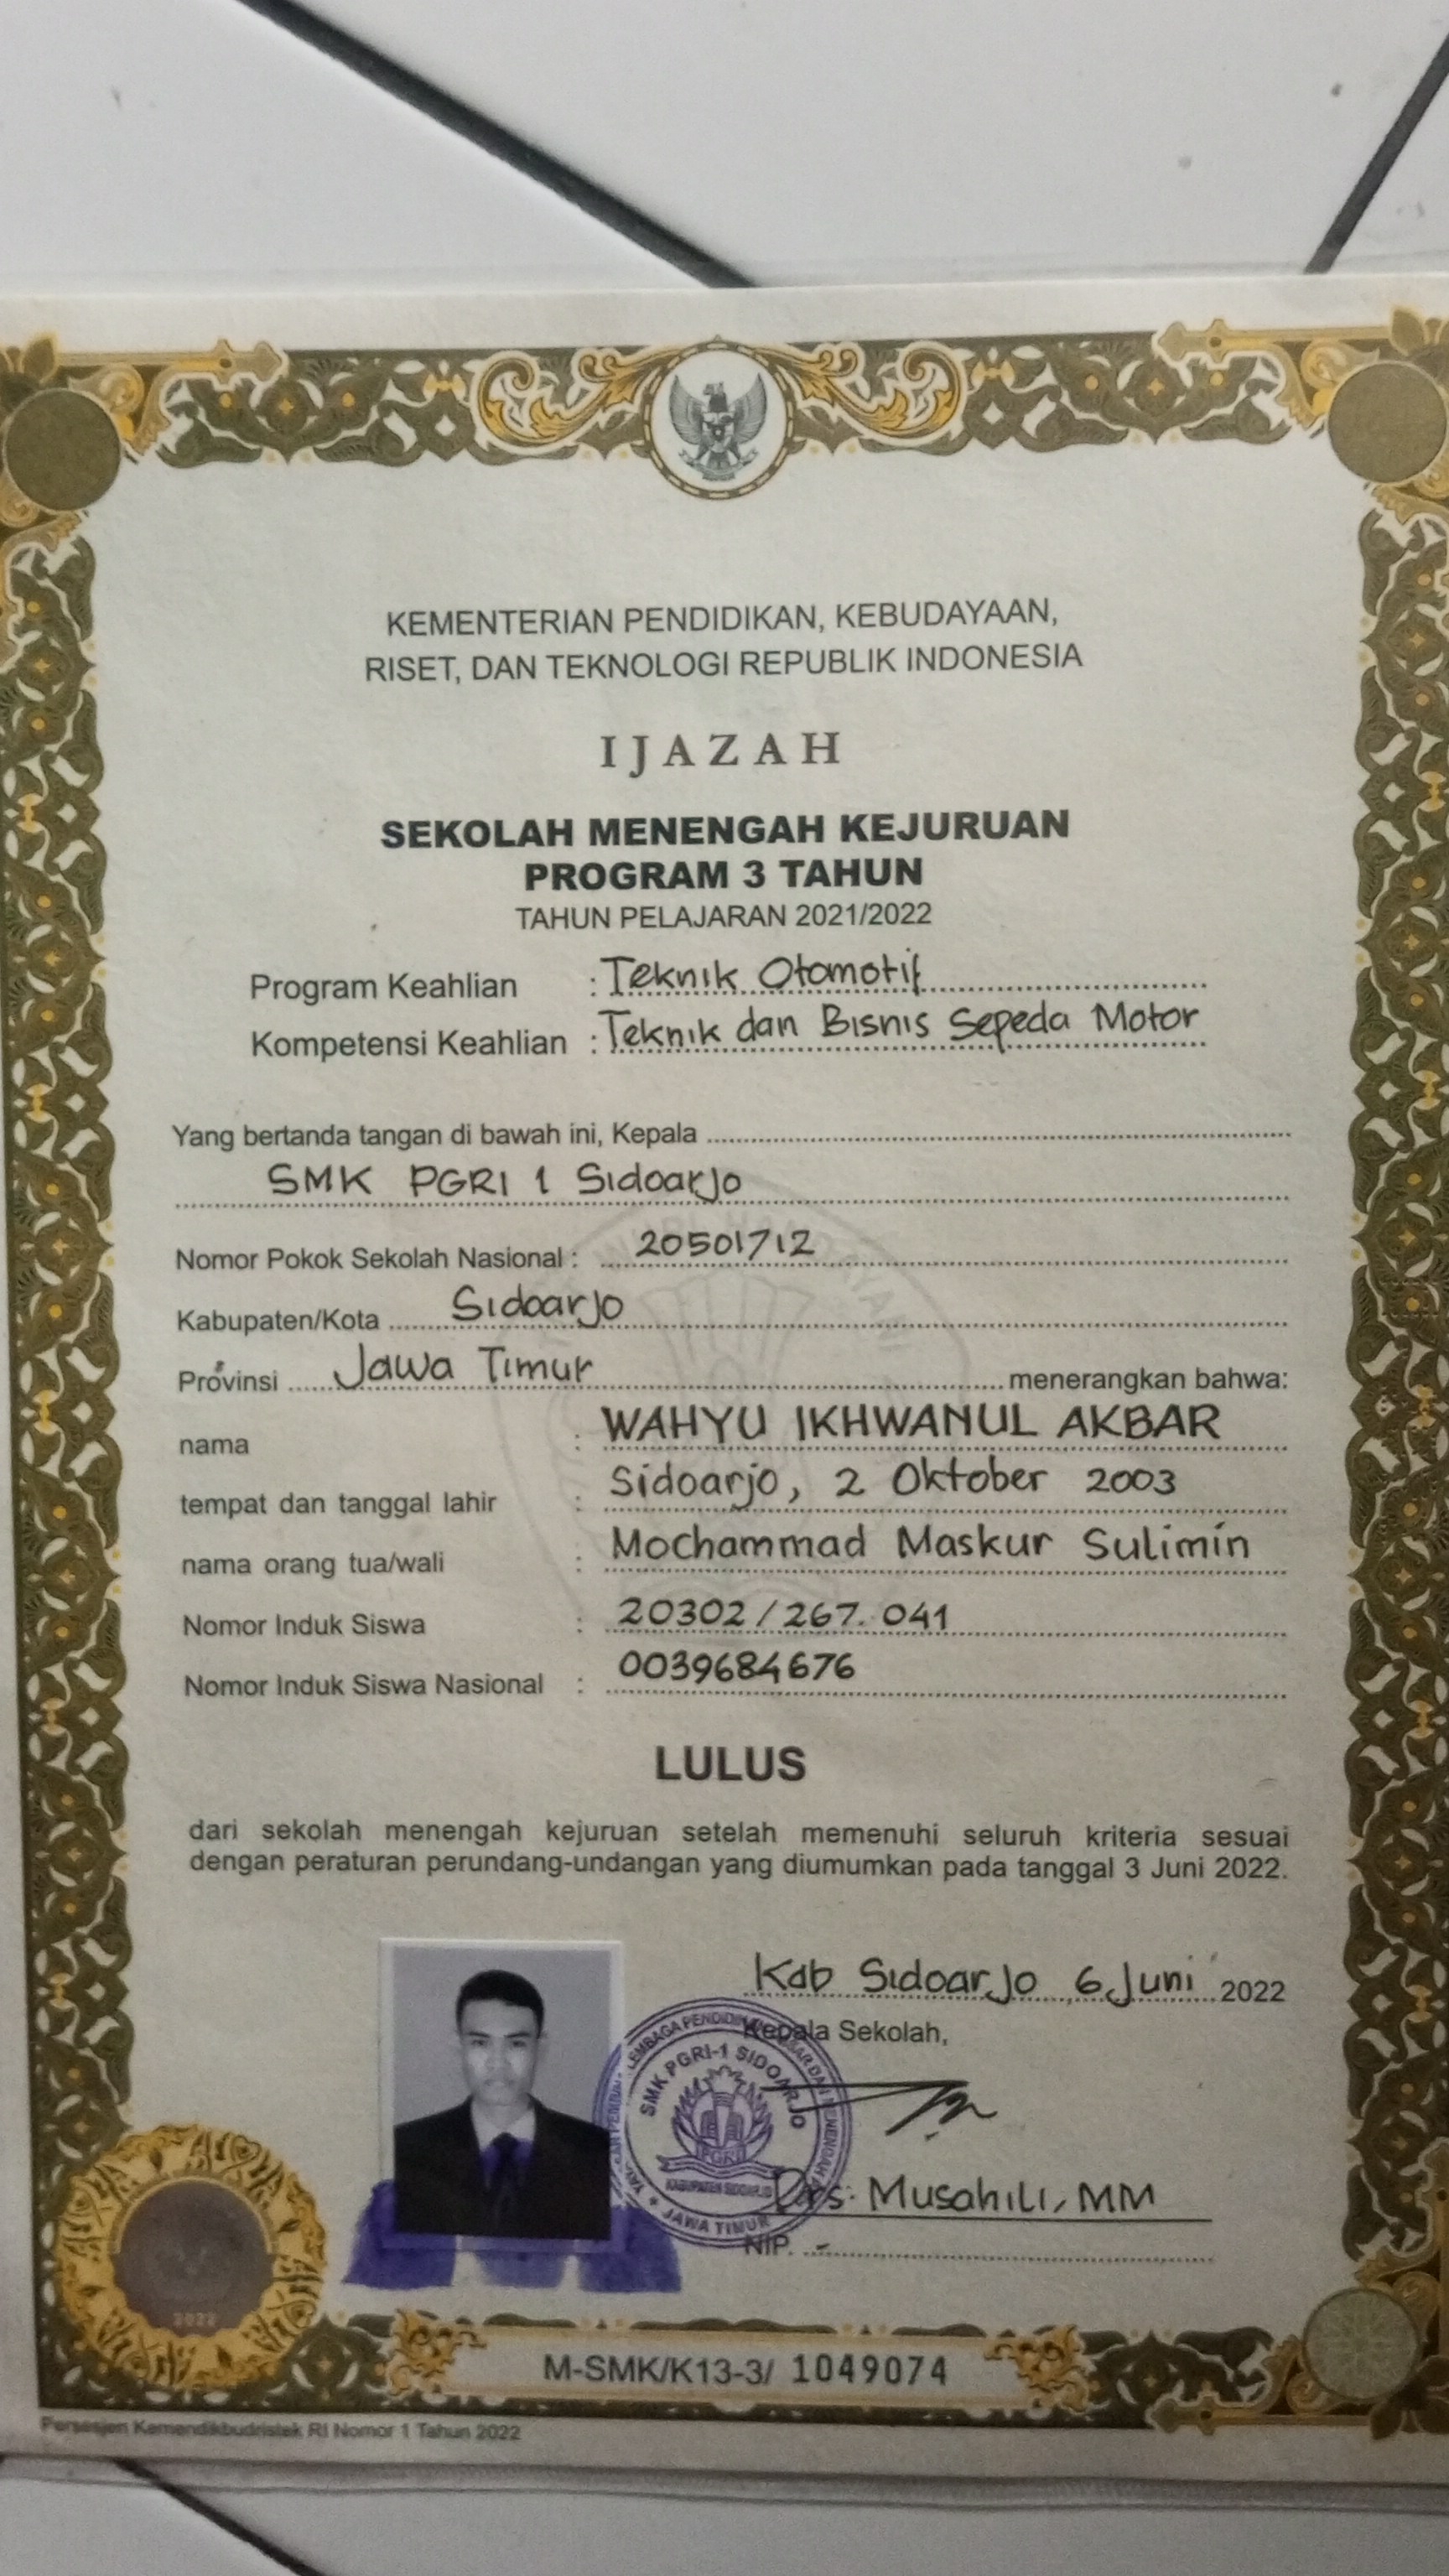 KEMENTERIAN PENDIDIKAN, KEBUDAYAAN,
RISET, DAN TEKNOLOGI REPUBLIK INDONESIA
IJAZAH
SEKOLAH MENENGAH KEJURUAN
PROGRAM 3 TAHUN
TAHUN PELAJARAN 2021/2022
Program Keahlian : Teknik Otomotif
Kompetensi Keahlian : Teknik dan Bisnis Sepeda Motor
Yang bertanda tangan di bawah ini, Kepala
SMK PGRI 1 Sidoarjo
Nomor Pokok Sekolah Nasional : 20501712
Kabupaten/Kota Sidoarjo
Provinsi Jawa Timur menerangkan bahwa:
nama : WAHYU IKHWANUL AKBAR
tempat dan tanggal lahir : Sidoarjo, 2 Oktober 2003
nama orang tua/wali : Mochammad Maskur Sulimin
Nomor Induk Siswa : 20302/267.041
Nomor Induk Siswa Nasional : 0039684676
LULUS
dari sekolah menengah kejuruan setelah memenuhi seluruh kriteria sesuai
dengan peraturan perundang-undangan yang diumumkan pada tanggal 3 Juni 2022.
Kab Sidoarjo, 6 Juni 2022
Kepala Sekolah,
SMK PGRI-1 SIDOARJO
PGRI
KABUPATEN SIDOARJO
JAWA TIMUR
Drs. Musahili, MM
NIP. -
2022
M-SMK/K13-3/ 1049074
Persesjen Kemendikbudristek RI Nomor 1 Tahun 2022